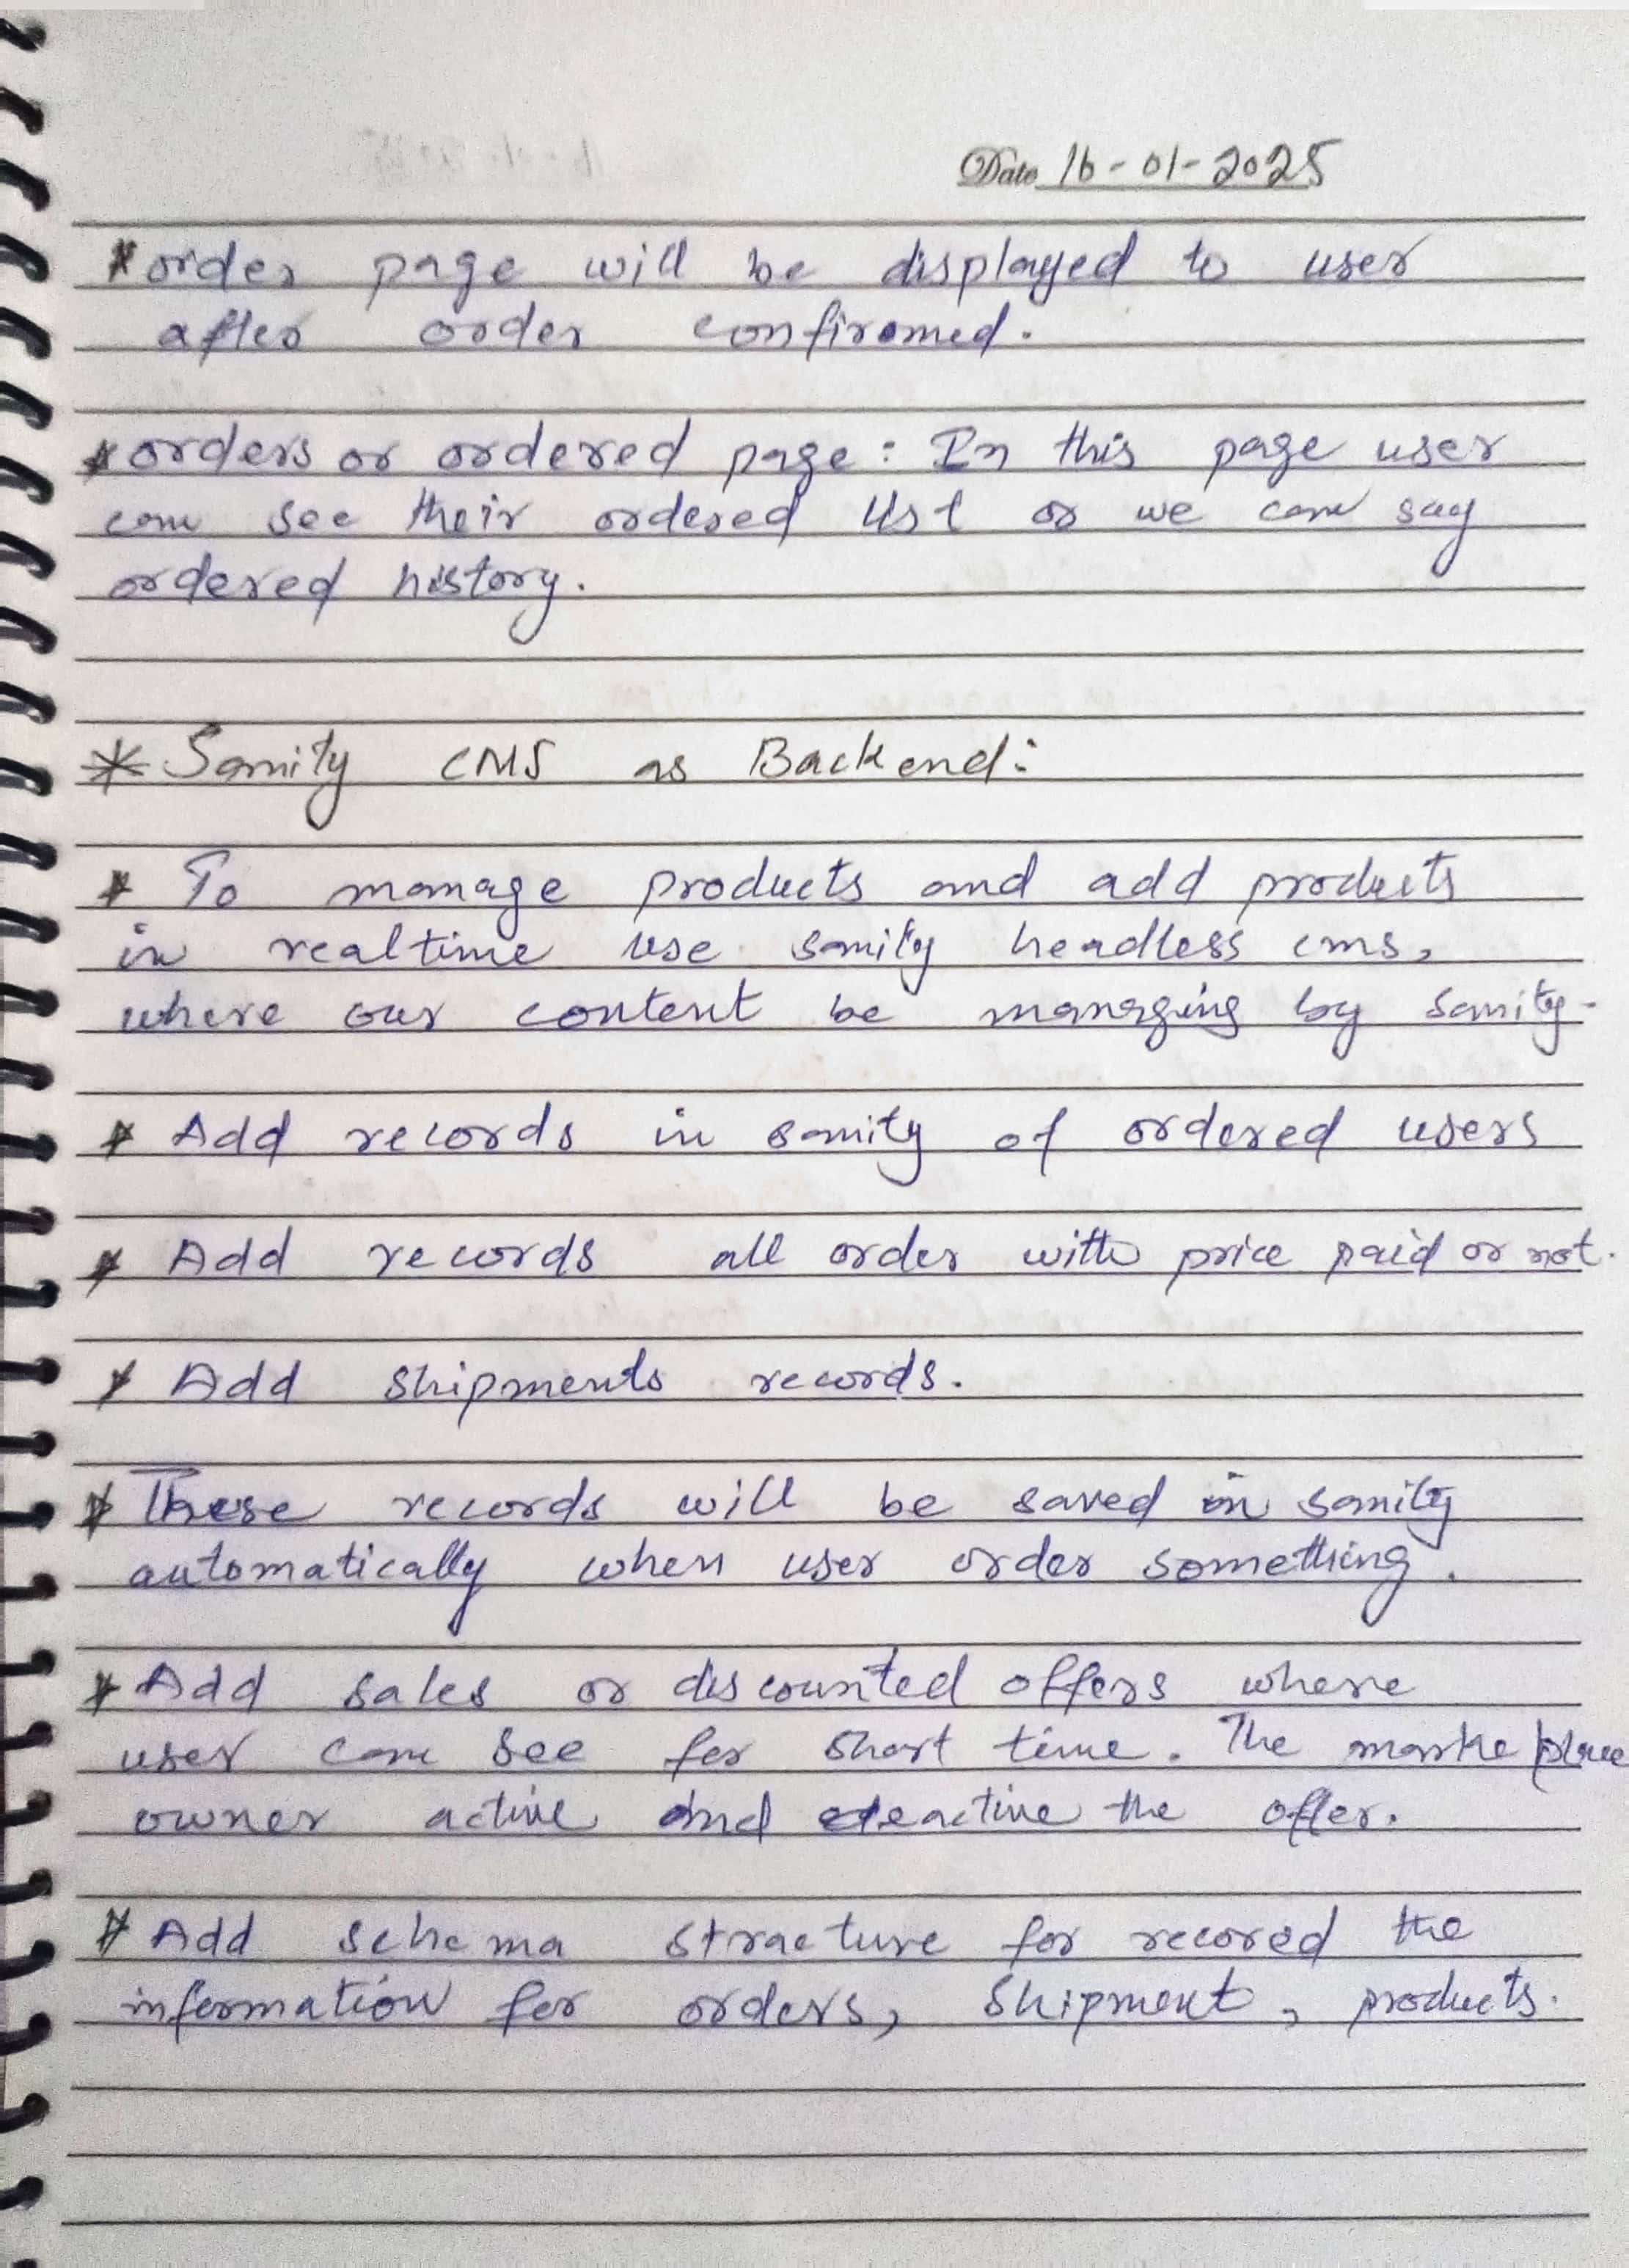 Date 16-01-2025
* order page will be displayed to user
after order confiromed.
* orders or ordered page: In this page user
can see their ordered list or we can say
ordered history.
* Sanity CMS as Backend:
* To manage products and add products
in realtime use sanity headless cms,
where our content be managing by sanity.
* Add records in sanity of ordered users
* Add records all order with price paid or not.
* Add shipments records.
* These records will be saved in sanity
automatically when user order something.
* Add sales or discounted offers where
user can see for short time. The marke place
owner active and deactive the offer.
* Add schema structure for recored the
information for orders, shipment, products.